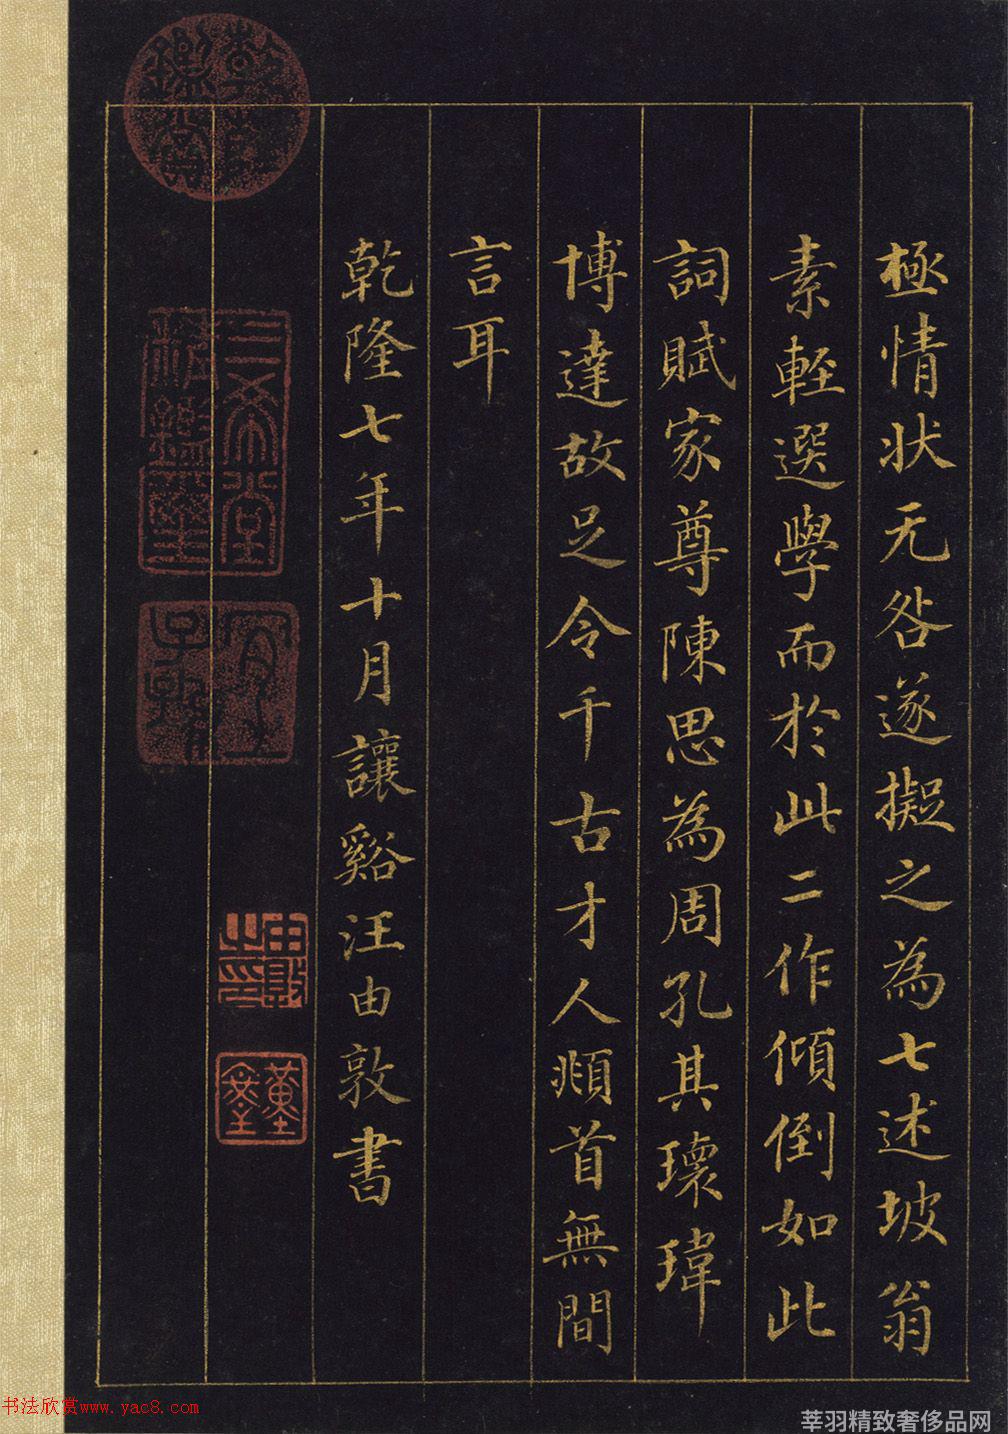 極情狀无咎遂擬之為七述坡翁
素輕選學而於此二作傾倒如此
詞賦家尊陳思為周孔其瓌瑋
博達故足令千古才人頫首無間
言耳
乾隆七年十月讓谿汪由敦書
乾隆鑑賞
三希堂精鑑璽
宜子孫
由敦之印
書法欣赏www.yac8.com
莘羽精致奢侈品网